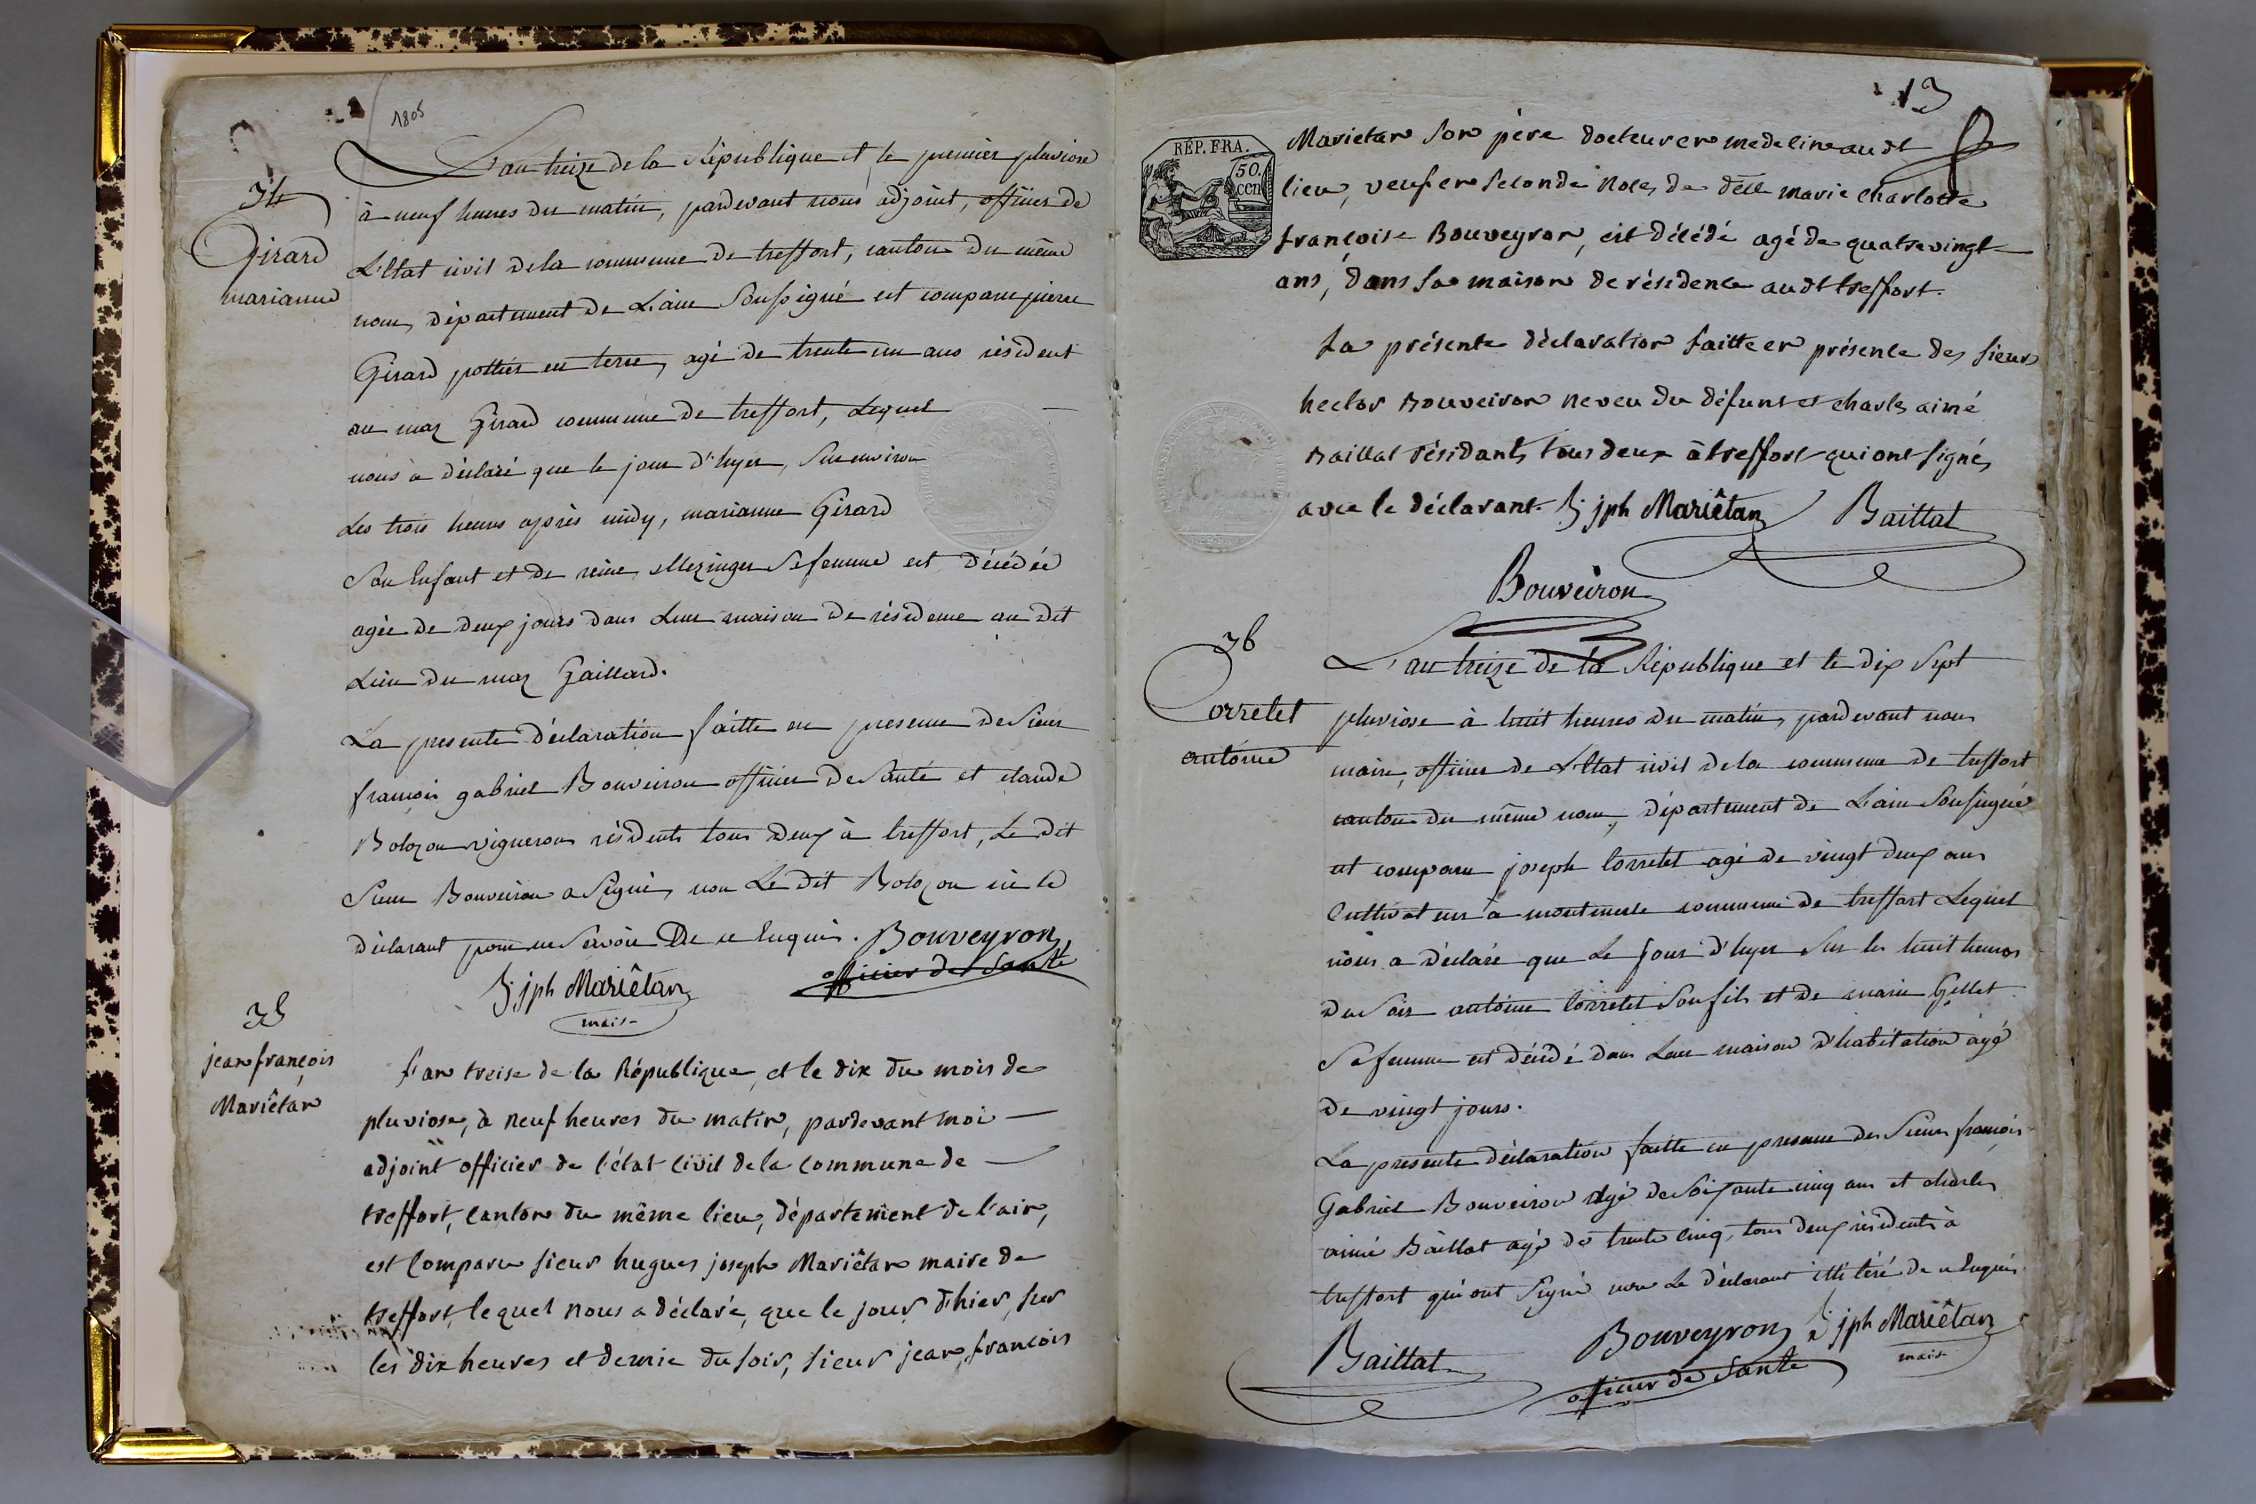 1805
34
Girard
marianne
L'an treize de la République et le premier pluviose
à neuf heures du matin, pardevant nous adjoint, officier de
L'Etat civil de la commune de treffort, canton du même
nom, département de L'ain Soussigné est comparu pierre
Girard pottier en terre, agé de trente un ans résident
au maz Girard commune de treffort, Lequel
nous a déclaré que le jour d'hyer, Sur environ
Les trois heures après midy, marianne Girard
Son Enfant et de reine Mezinger Sa femme est décédée
agée de deux jours dans Leur maison de résidence au dit
Lieu du maz Gaillard.
La presente déclaration faitte en presence de Sieur
françois gabriel Bouveiron officier de Santé et claude
Bolozon vigneron résidents tous deux à treffort, Le dit
Sieur Bouveiron a Signé, non Le dit Bolozon ni le
déclarant pour ne Savoir De ce Enquis. Bouveyron
officier de Santé
h: jph Mariêtan
maire
35
jean françois
Mariêtan
L'an treise de la République, et le dix du mois de
pluviose, à neuf heures du matin, pardevant moi
adjoint officier de l'état civil de la commune de
treffort, canton du même lieu, département de l'ain,
est comparu sieur hugues joseph Mariêtan maire de
treffort, lequel nous a déclaré, que le jour d'hier, sur
les dix heures et demie du soir, sieur jean françois
13
RÉP. FRA.
50.
cen
Marietan son père docteur en medecine audt
lieu, veuf en seconde noces de delle marie charlotte
françoise Bouveyron, est décédé agé de quatrevingt
ans, dans sa maison de résidence audt treffort.
La présente déclaration faitte en présence des sieurs
hector Bouveiron neveu du défunt et charles aimé
Baillat résidants tous deux à treffort qui ont signé,
avec le déclarant. h: jph Mariêtan Baillat
Bouveiron
36
Corretet
antoine
L'an treize de la République et le dix Sept
pluviose à huit heures du matin, pardevant nous
maire, officier de L'Etat civil de la commune de treffort
canton du même nom, département de L'ain Soussigné
est comparu joseph Corretet agé de vingt deux ans
Cultivateur à montmerle commune de treffort Lequel
nous a déclaré que Le jour d'hyer Sur les huit heures
du Soir antoine Corretet Son fils et de marie Gellet
Sa femme est décédé dans Leur maison d'habitation agé
de vingt jours.
La presente déclaration faitte en presence des Sieurs françois
Gabriel Bouveiron agé de Soixante cinq ans et charles
aimé Baillat agé de trente cinq, tous deux résidents à
treffort qui ont Signé non Le déclarant illitéré de ce Enquis.
Baillat
Bouveyron h: jph Mariêtan
officier de Sante maire